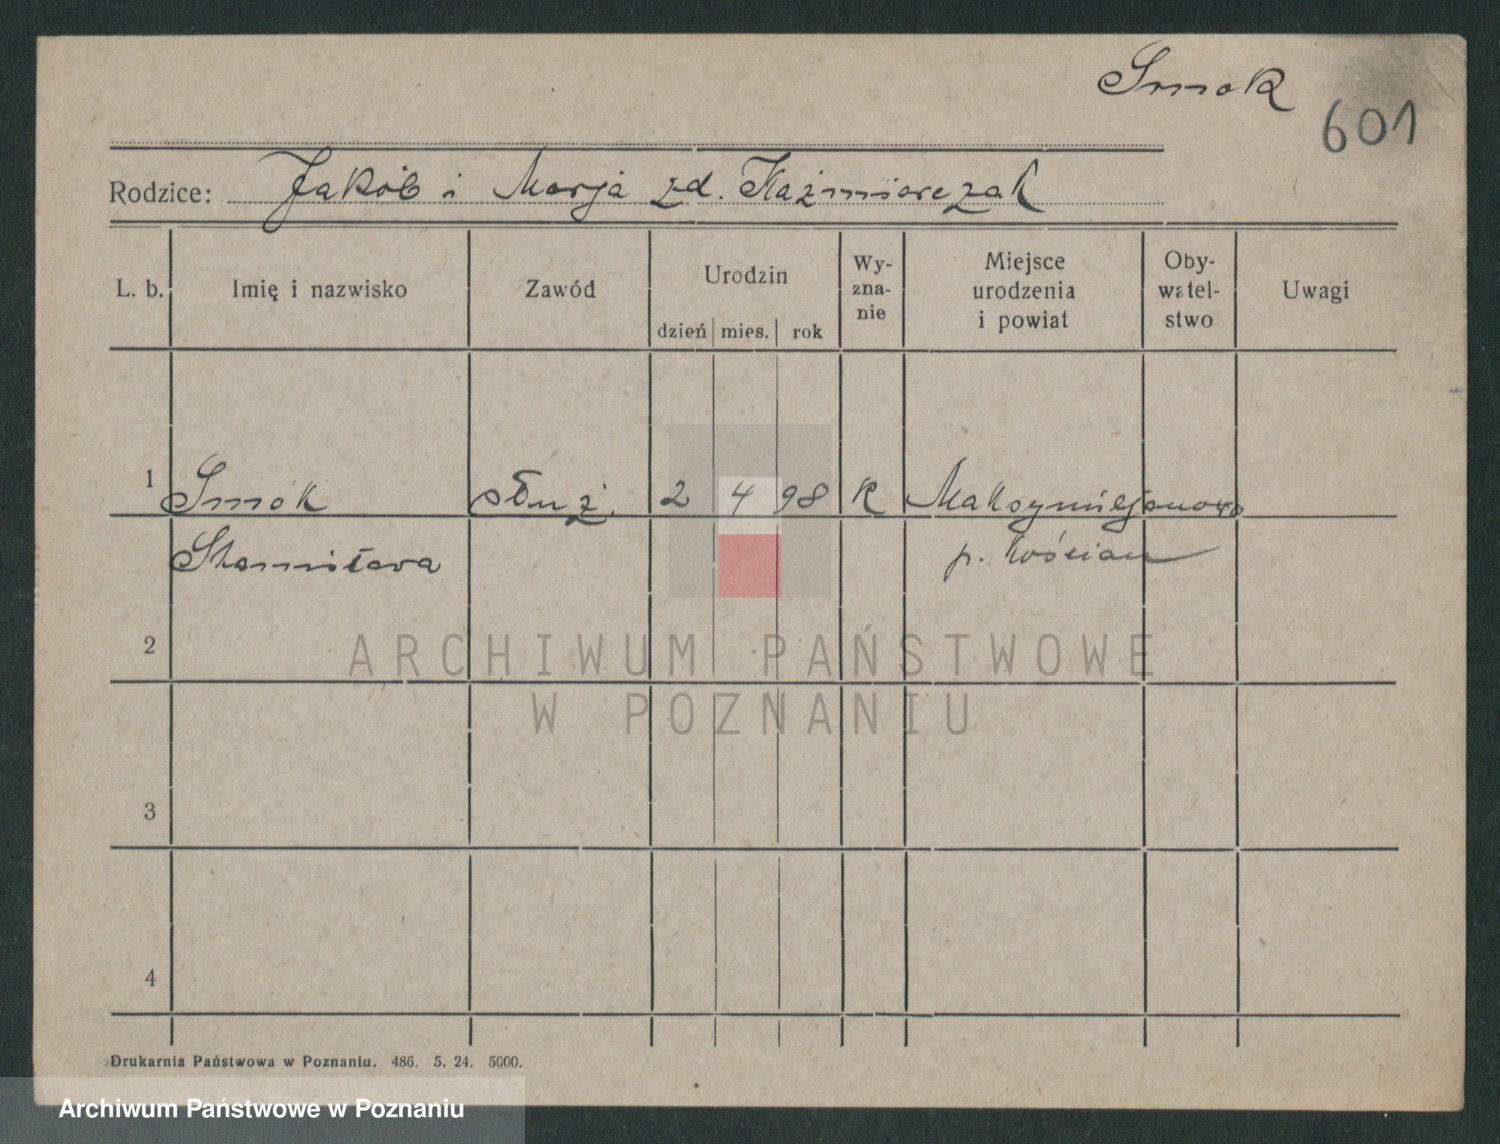 Smok
601
Rodzice: Jakób i Marja zd. Kaźmierczak
L. b. Imię i nazwisko Zawód Urodzin dzień mies. rok Wy-zna-nie Miejsce urodzenia i powiat Oby-watel-stwo Uwagi
1 Smok służ. 2 4 98 K Maksymiljanowo
Stanisława p. Kościan
2
ARCHIWUM PAŃSTWOWE
W POZNANIU
3
4
Drukarnia Państwowa w Poznaniu. 486. 5. 24. 5000.
Archiwum Państwowe w Poznaniu